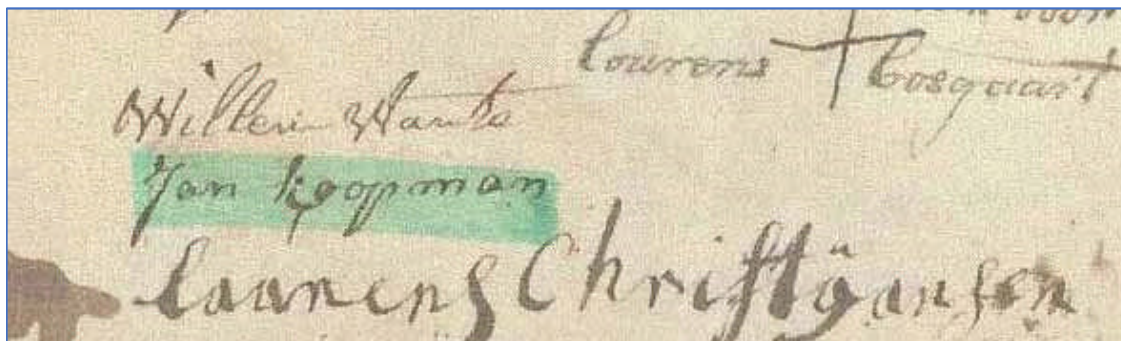 Lourens Cosquart
Willem Wants
Jan Koopman
Laurens Christÿansen